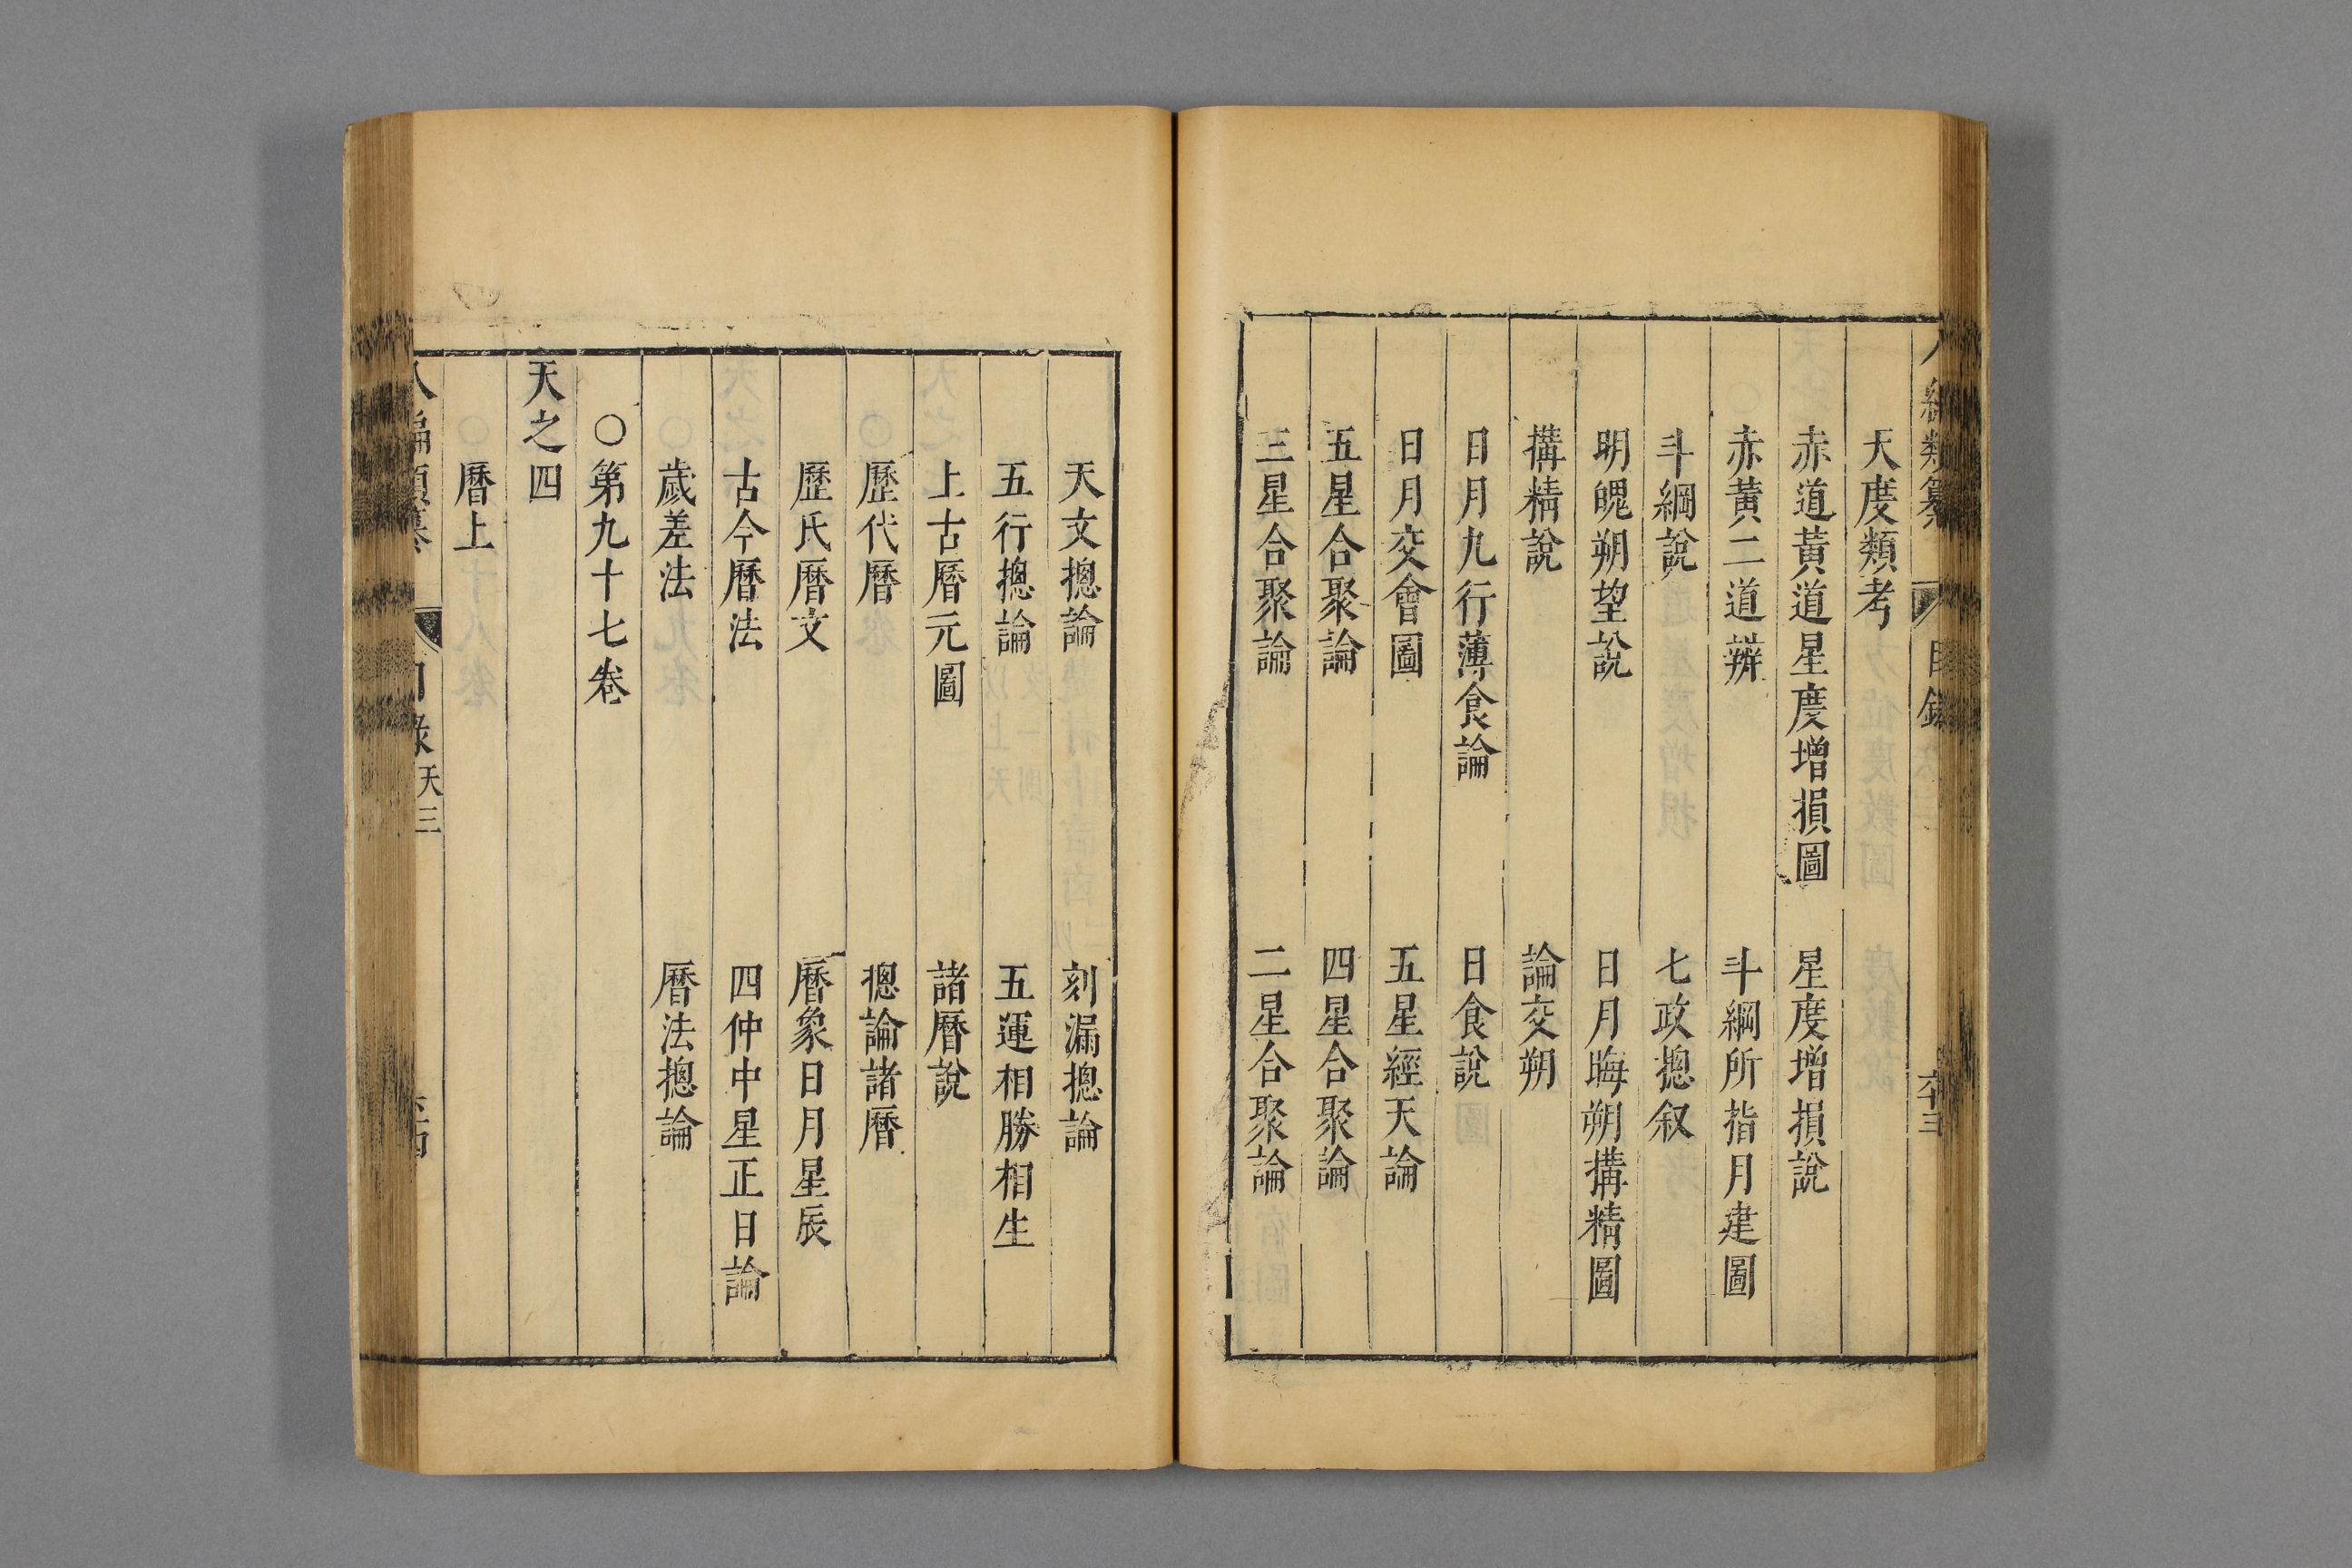 八編類纂 目錄 六十三
天度類考
赤道黃道星度增損圖 星度增損說
赤黃二道辨 斗綱所指月建圖
斗綱說 七政摠叙
明魄朔望說 日月晦朔搆精圖
搆精說 論交朔
日月九行薄食論 日食說
日月交會圖 五星經天論
五星合聚論 四星合聚論
三星合聚論 二星合聚論
天文摠論 刻漏摠論
五行摠論 五運相勝相生
上古曆元圖 諸曆說
歷代曆 摠論諸曆
歷氏曆文 曆象日月星辰
古今曆法 四仲中星正日論
歲差法 曆法摠論
○第九十七卷
天之四
曆上
八編類纂 目錄 天三